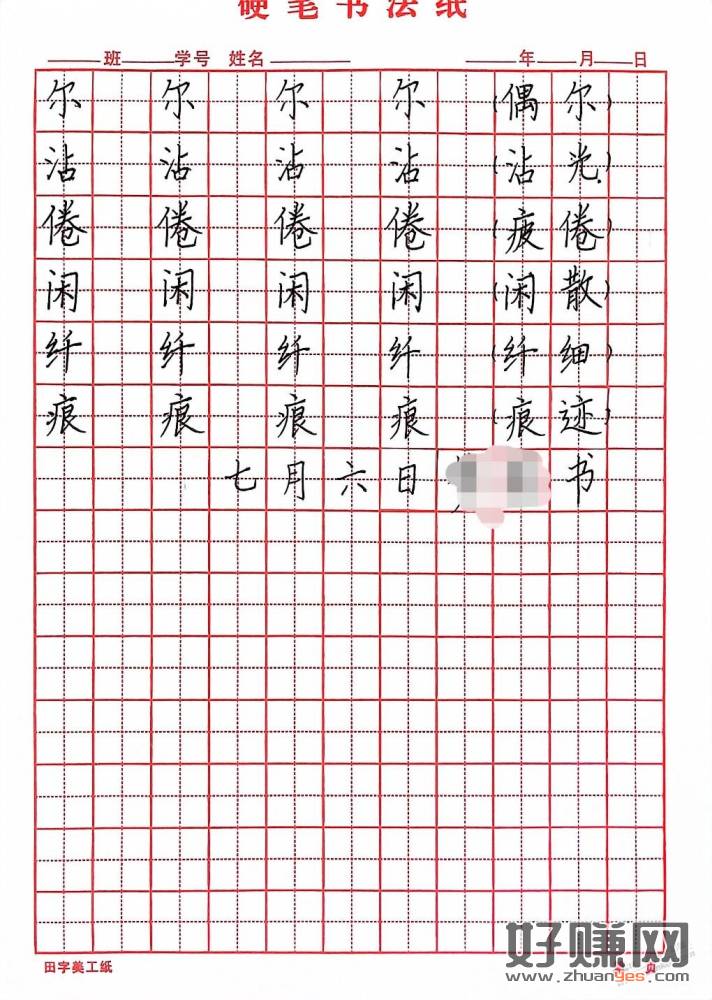 硬笔书法纸
班 学号 姓名 年 月 日
尔 尔 尔 尔 (偶尔)
沾 沾 沾 沾 (沾光)
倦 倦 倦 倦 (疲倦)
闲 闲 闲 闲 (闲散)
纤 纤 纤 纤 (纤细)
痕 痕 痕 痕 (痕迹)
七月六日 书
田字美工纸
页
好赚网
www.zhuanyes.com